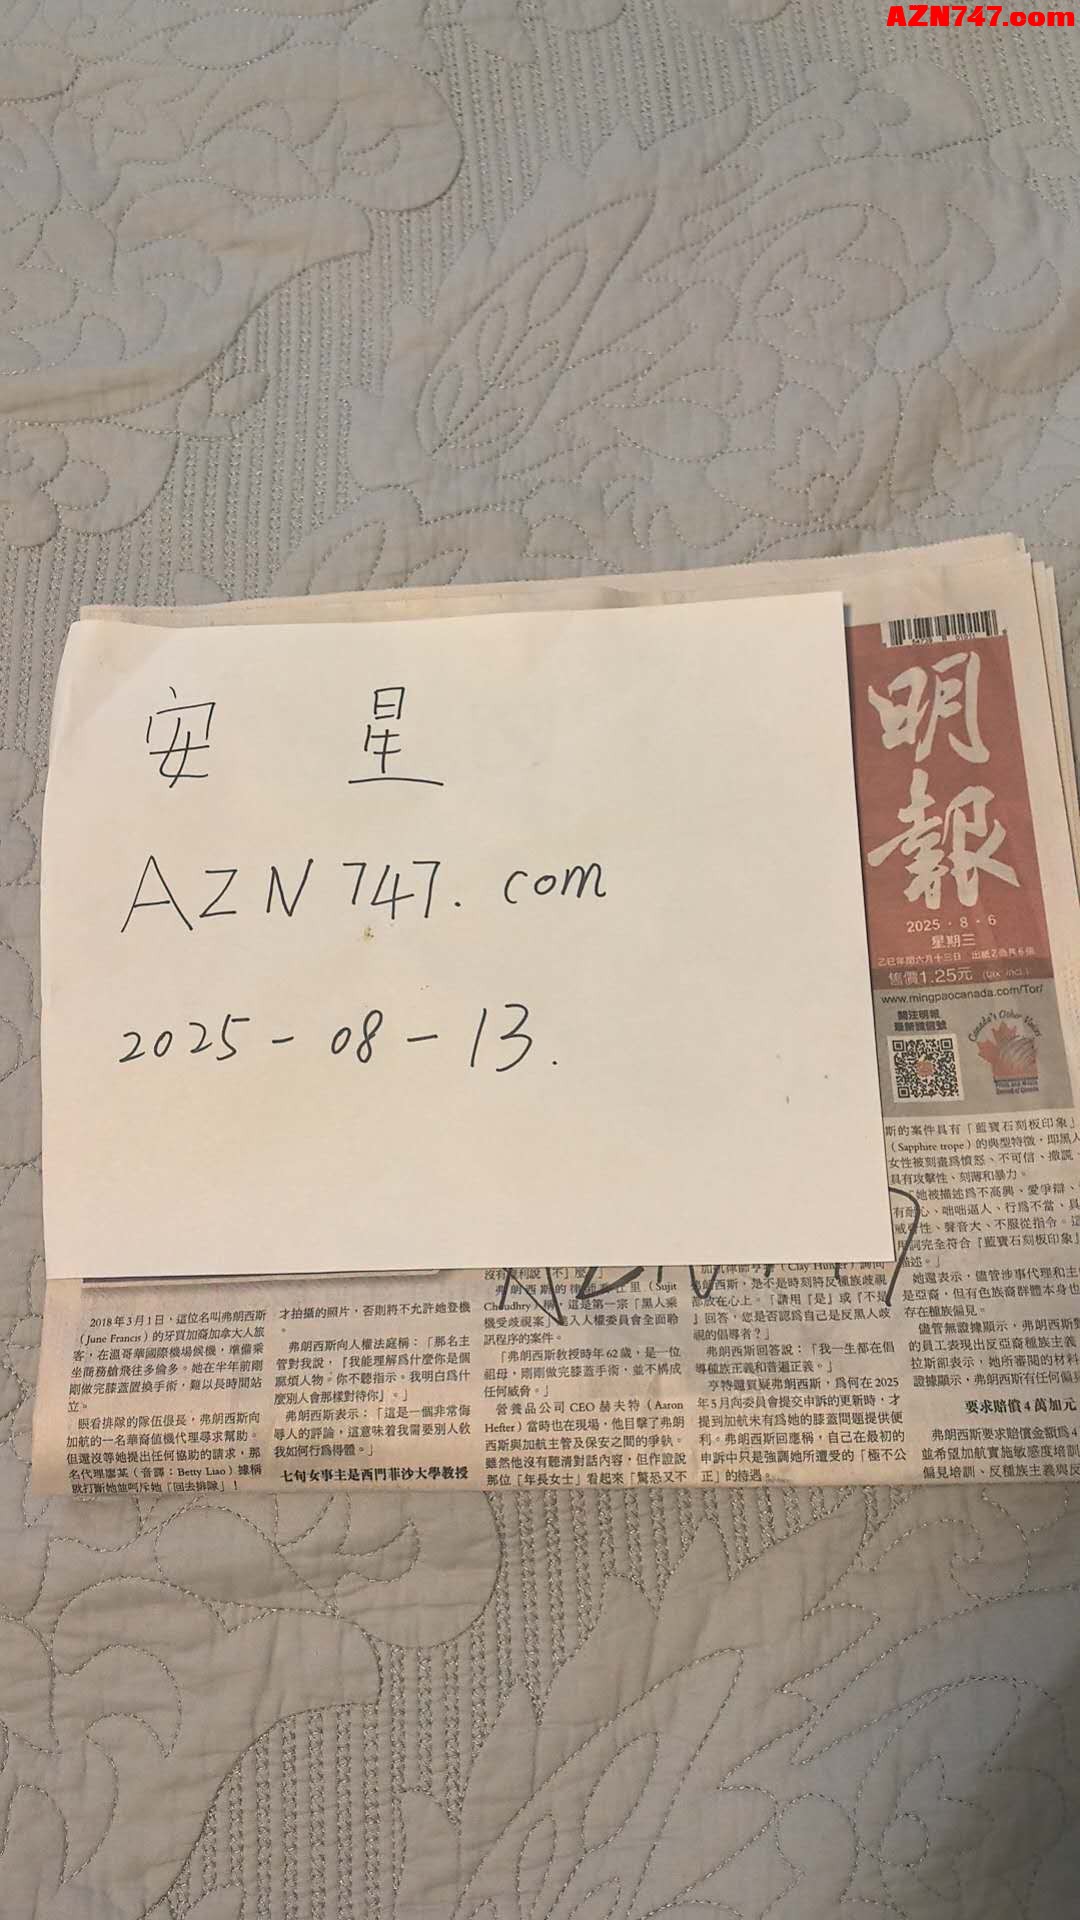 AZN747.com
安 星
AZN747.com
2025-08-13.
明報
2025・8・6
星期三
售價1.25元
www.mingpaocanada.com/Tor/
關注明報
Canada's Other Voices
斯的案件具有「藍寶石刻板印象」
（Sapphire trope）的典型特徵，即黑人
女性被刻畫為憤怒、不可信、撒謊、
具有攻擊性、刻薄和暴力。
「她被描述為不高興、愛爭辯、
有耐心、咄咄逼人、行為不當、具
性、聲音大、不服從指令。這
詞完全符合『藍寶石刻板印象』
描述。」
她還表示，儘管涉事代理和主
是亞裔，但有色族裔群體本身也
存在種族偏見。
儘管無證據顯示，弗朗西斯
的員工表現出反亞裔種族主義
拉斯卻表示，她所審閱的材料
證據顯示，弗朗西斯有任何偏見
要求賠償4萬加元
弗朗西斯要求賠償金額為4
並希望加航實施敏感度培訓
偏見培訓、反種族主義與反
2018年3月1日，這位名叫弗朗西斯
（June Francis）的牙買加裔加拿大人旅
客，在溫哥華國際機場候機，準備乘
坐商務艙飛往多倫多。她在半年前剛
剛做完膝蓋置換手術，難以長時間站
立。
眼看排隊的隊伍很長，弗朗西斯向
加航的一名華裔值機代理尋求幫助。
但還沒等她提出任何協助的請求，那
名代理廖某（音譯：Betty Liao）據稱
就打斷她並呵斥她「回去排隊」！
才拍攝的照片，否則將不允許她登機
。
弗朗西斯向人權法庭稱：「那名主
管對我說，『我能理解為什麼你是個
麻煩人物。你不聽指示。我明白為什
麼別人會那樣對待你』。」
弗朗西斯表示：「這是一個非常侮
辱人的評論，這意味着我需要別人教
我如何行為得體。」
七旬女事主是西門菲沙大學教授
弗朗西斯的律師
（Sujit
Chaudhry）稱，這是第一宗「黑人乘
機受歧視案」進入人權委員會全面聆
訊程序的案件。
「弗朗西斯教授時年62歲，是一位
祖母，剛剛做完膝蓋手術，並不構成
任何威脅。」
營養品公司CEO赫夫特（Aaron
Hefter）當時也在現場，他目擊了弗朗
西斯與加航主管及保安之間的爭執。
雖然他沒有聽清對話內容，但作證說
那位「年長女士」看起來「驚恐又不
（Clay Hunter）詢問
弗朗西斯，是不是時刻將反種族歧視
都放在心上。「請用『是』或『不是
』回答，您是否認為自己是反黑人歧
視的倡導者？」
弗朗西斯回答說：「我一生都在倡
導種族正義和普遍正義。」
亨特還質疑弗朗西斯，為何在2025
年5月向委員會提交申訴的更新時，才
提到加航未有為她的膝蓋問題提供便
利。弗朗西斯回應稱，自己在最初的
申訴中只是強調她所遭受的「極不公
正」的待遇。